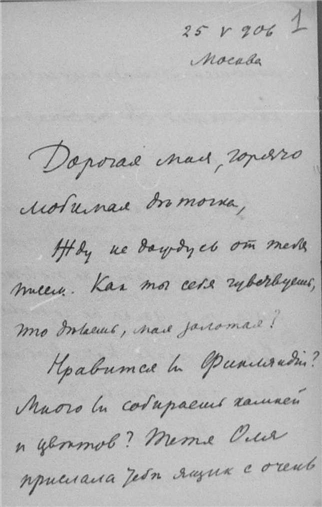 25 V 906 1
Москва
Дорогая моя, горячо
любимая дѣточка,
Жду не дождусь от тебя
писем. Как ты себя чувствуешь,
что дѣлаешь, моя золотая?
Нравится ли Финляндія?
Много ли собираешь камней
и цвѣтов? Тетя Оля
прислала тебѣ ящик с очень